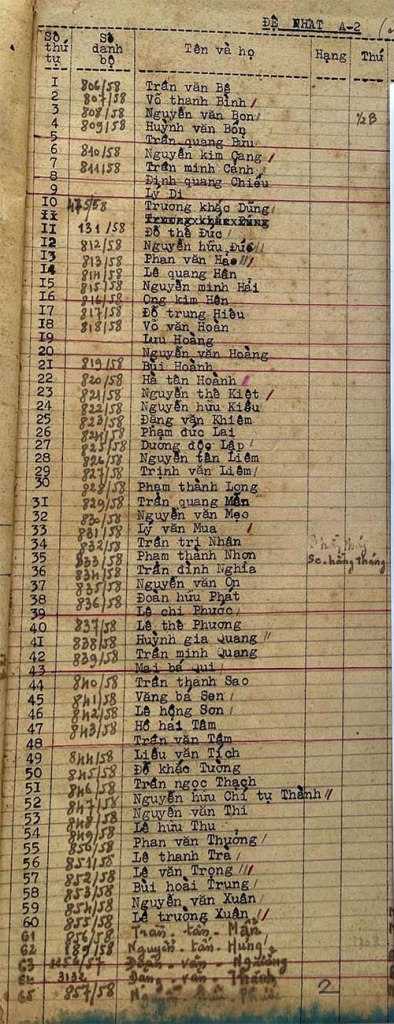 ĐỆ NHẤT A-2
Số thứ tự Số danh bộ Tên và họ Hạng Thứ
1 806/58 Trần văn Bê
2 807/58 Võ thanh Bình
3 808/58 Nguyễn văn Bon
4 809/58 Huỳnh văn Bốn ½B
5 Trần quang Bửu
6 810/58 Nguyễn kim Cang
7 811/58 Trần minh Cảnh
8 Định quang Chiểu
9 Lý Di
10 475/58 Trương khắc Dũng
11 Trương khắc Dũng
11 131/58 Đỗ thế Đức
12 812/58 Nguyễn hữu Đức
13 813/58 Phan văn Hảo
14 814/58 Lê quang Hân
15 815/58 Nguyễn minh Hải
16 816/58 Ong kim Hên
17 817/58 Đỗ trung Hiếu
18 818/58 Võ văn Hoàn
19 Lưu Hoàng
20 Nguyễn văn Hoàng
21 819/58 Bùi Hoành
22 820/58 Hà tân Hoành
23 821/58 Nguyễn thế Kiệt
24 822/58 Nguyễn hữu Kiểu
25 823/58 Đặng văn Khiêm
26 824/58 Phạm đức Lai
27 825/58 Dương độc Lập
28 826/58 Nguyễn tấn Liêm
29 827/58 Trịnh văn Liêm
30 828/58 Phạm thành Long
31 829/58 Trần quang Mẫn
32 830/58 Nguyễn văn Mẹo
33 831/58 Lý văn Mua
34 832/58 Trần trị Nhân
35 833/58 Phạm thành Nhơn Sc. hàng tháng
36 834/58 Trần đình Nghĩa
37 835/58 Nguyễn văn Ơn
38 836/58 Đoàn hữu Phát
39 Lê chí Phước
40 837/58 Lê thế Phương
41 838/58 Huỳnh gia Quang
42 839/58 Trần minh Quang
43 Mai bá Qui
44 840/58 Trần thành Sao
45 841/58 Văng bá Sen
46 842/58 Lê hồng Sơn
47 843/58 Hồ hải Tâm
48 Trần văn Tâm
49 844/58 Liêu văn Tích
50 845/58 Đỗ khắc Tường
51 846/58 Trần ngọc Thạch
52 847/58 Nguyễn hữu Chí tự Thành
53 848/58 Nguyễn văn Thi
54 849/58 Lê hữu Thu
55 850/58 Phan văn Thưởng
56 851/58 Lê thanh Trà
57 852/58 Lê văn Trọng
58 853/58 Bùi hoài Trung
59 854/58 Nguyễn văn Xuân
60 855/58 Lê trường Xuân
61 856/58 Trần-tấn-Mẫn
62 Nguyễn-tấn-Hưng
63 văn
64 3132 văn-Thành
65 857/58 2